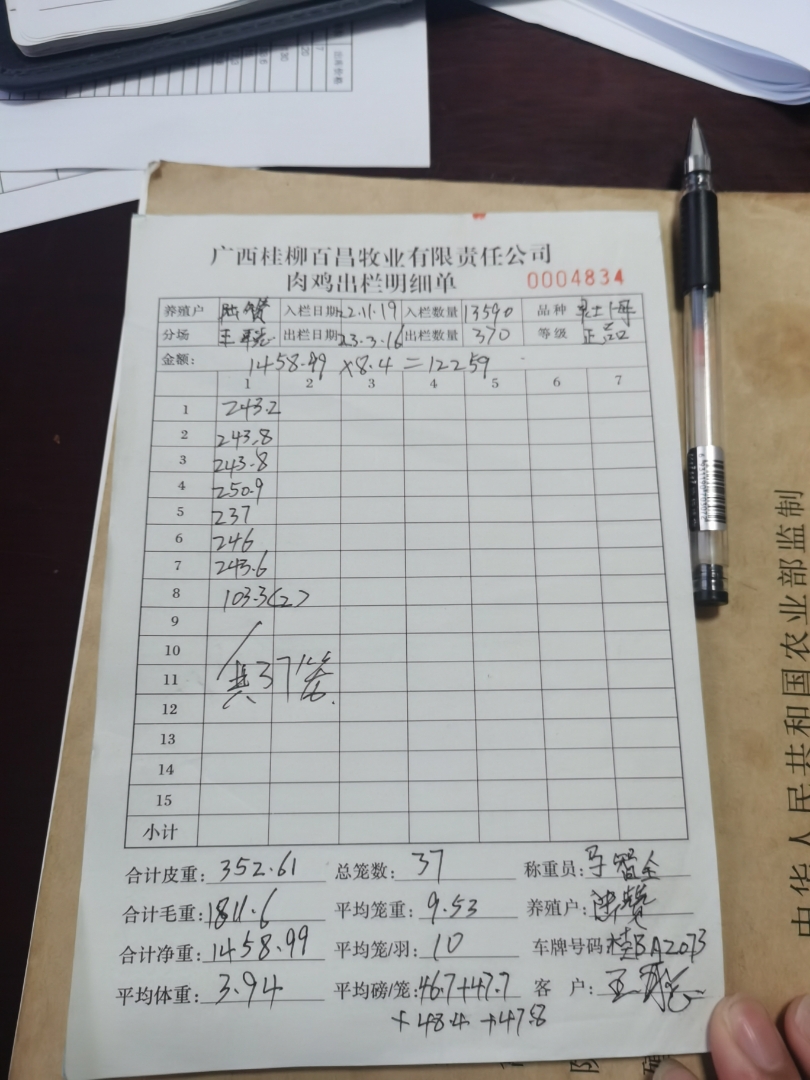 广西桂柳百昌牧业有限责任公司
肉鸡出栏明细单 0004834
养殖户 入栏日期 22.11.19 入栏数量 13590 品种
分场 出栏日期 23.3.16 出栏数量 370 等级 正品
金额: 1458.99 ×8.4 =12259
1 2 3 4 5 6 7
1 243.2
2 243.8
3 243.8
4 250.9
5 237
6 246
7 243.6
8 103.3<2>
9
10
11 共37笼
12
13
14
15
小计
合计皮重: 352.61 总笼数: 37 称重员:
合计毛重: 1811.6 平均笼重: 9.53 养殖户:
合计净重: 1458.99 平均笼/羽: 10 车牌号码: 桂BA2073
平均体重: 3.94 平均磅/笼: 46.7+47.7 客 户:
+48.4 +47.8
中华人民共和国农业部监制